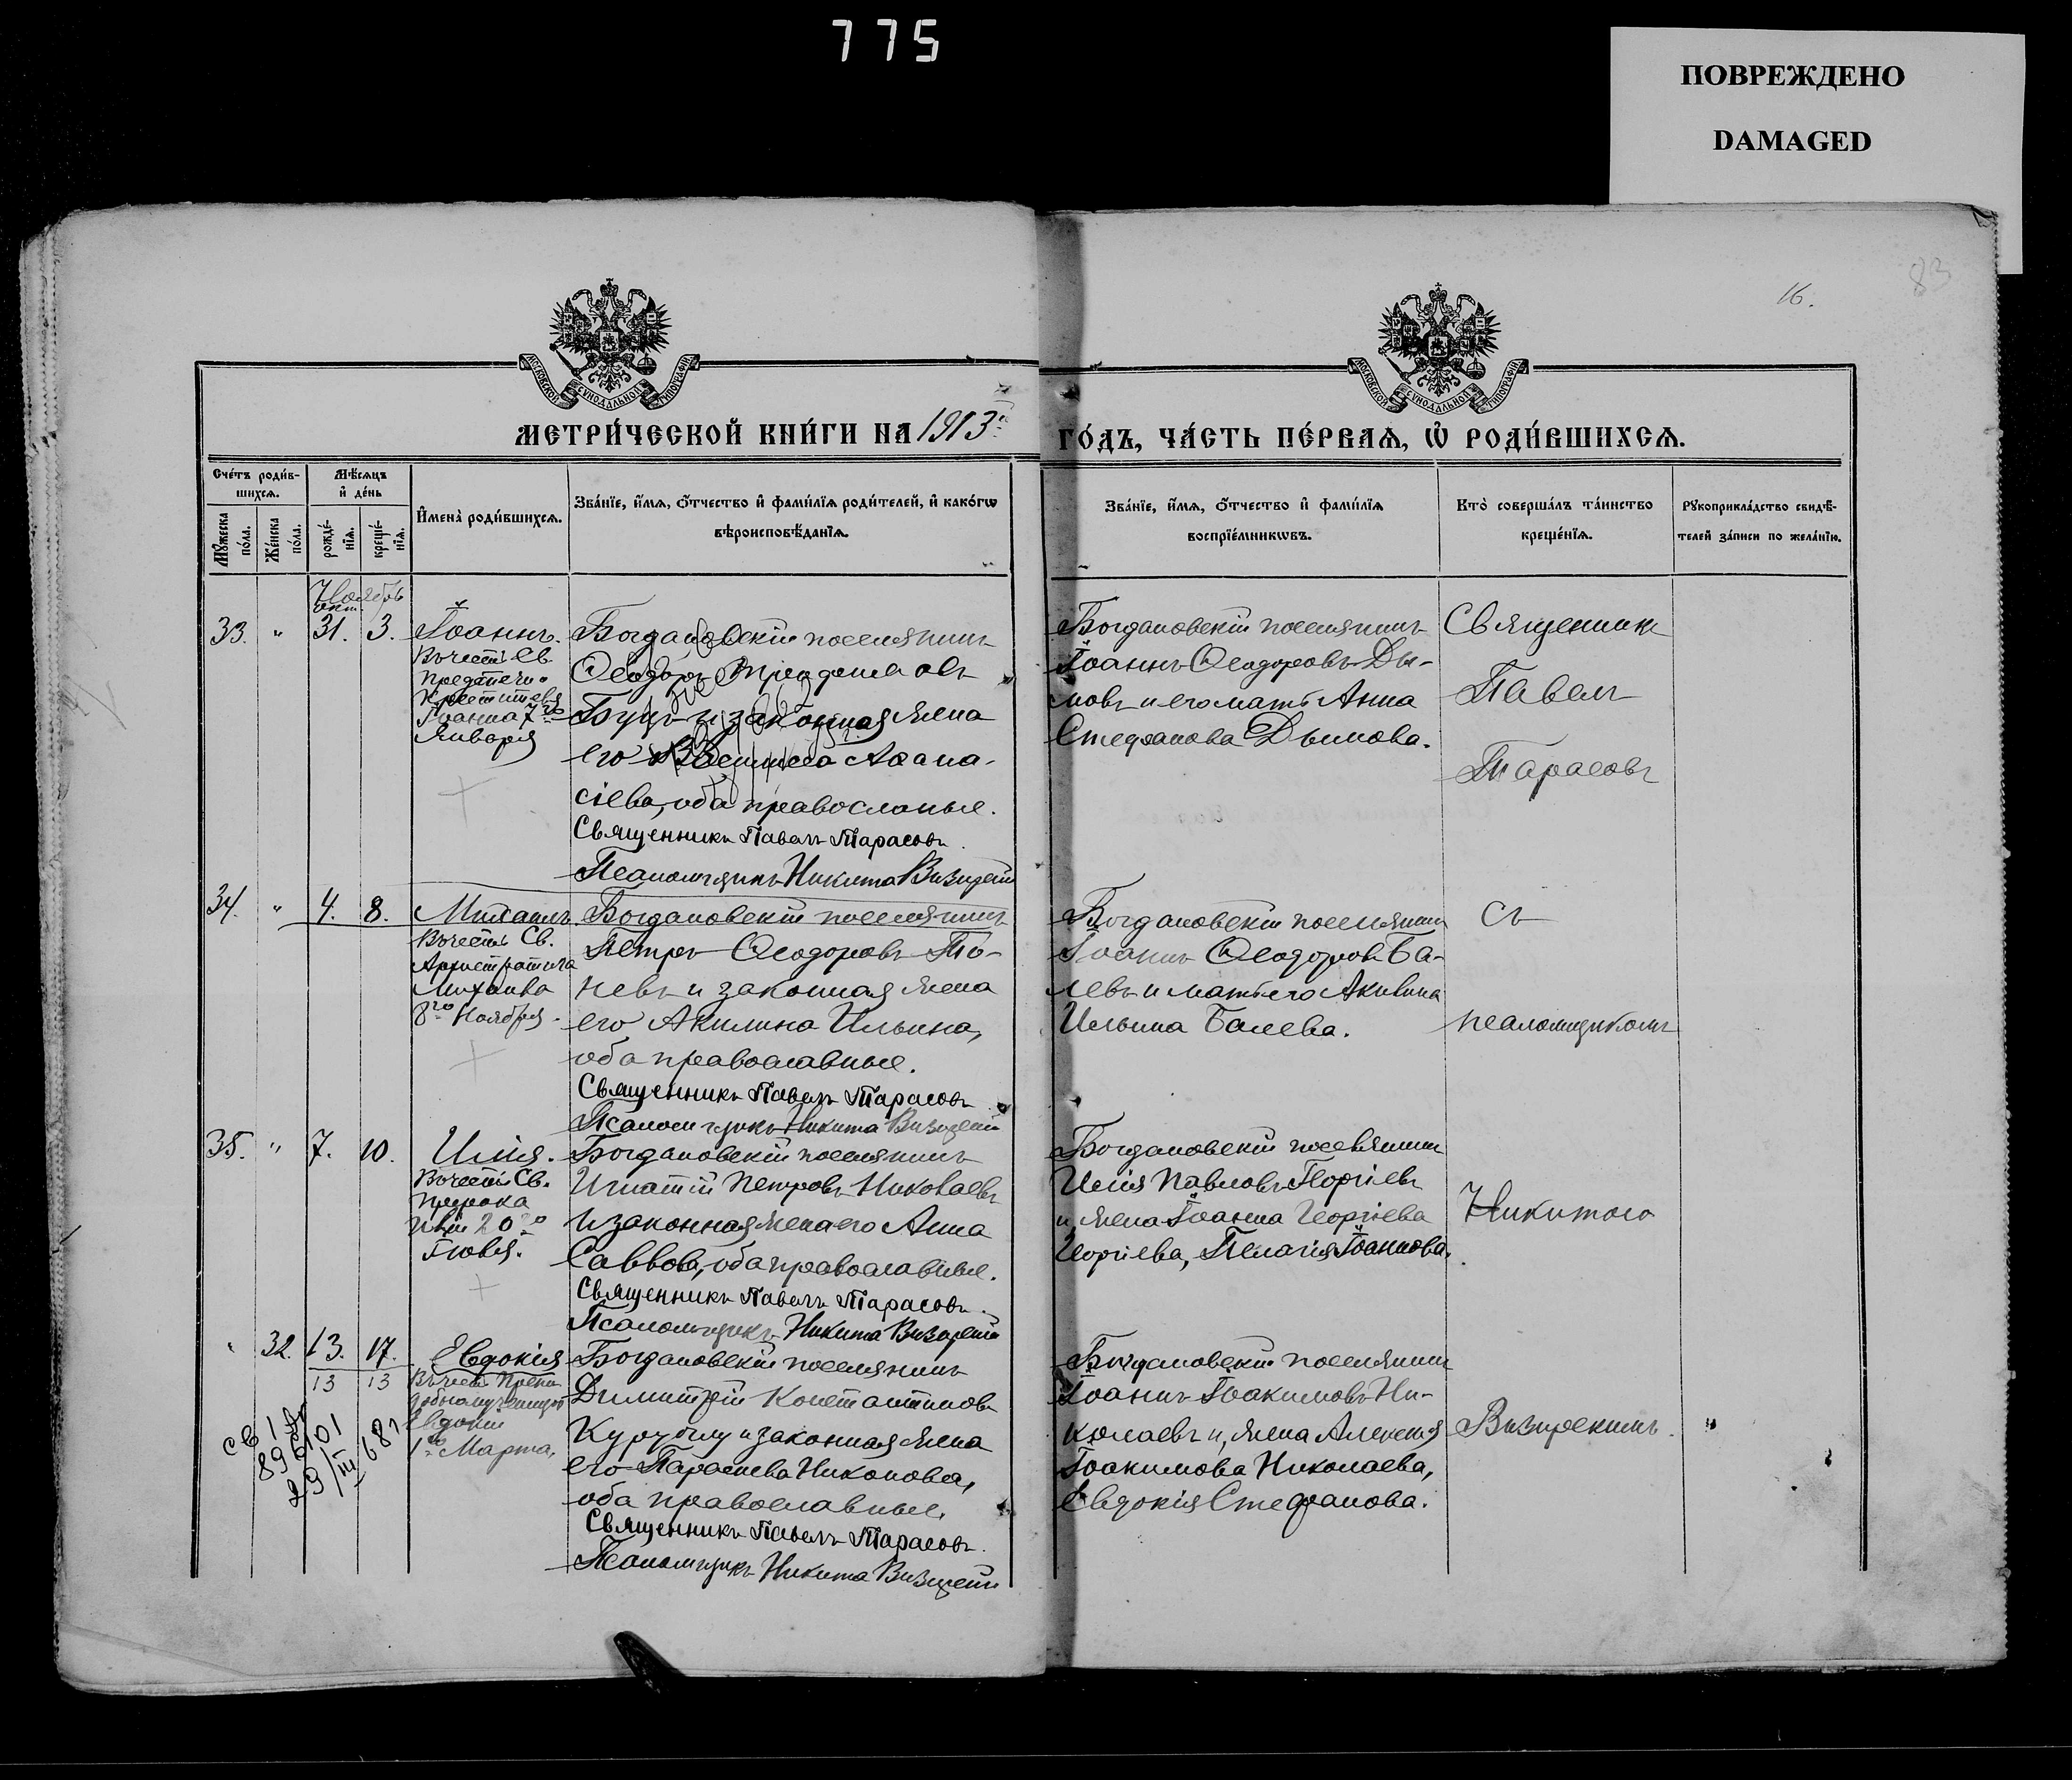 775
ПОВРЕЖДЕНО
DAMAGED
83
16.
МОСКОВСКОЙ СУНОДАЛЬНОЙ ТИПОГРАФІИ
МОСКОВСКОЙ СУНОДАЛЬНОЙ ТИПОГРАФІИ
МЕТРИ́ЧЕСКОЙ КНИ́ГИ НА 1913 й
ГО́ДЪ, ЧА́СТЬ ПЕ́РВАѦ, Ѡ҆ РОДИ́ВШИХСѦ.
Сче́тъ роди́в-
шихсѧ.
Мѣ́сѧцъ
и҆ де́нь
И҆мена̀ роди́вшихсѧ.
Зва́нїе, и҆́мѧ, ѻ҆́тчество и҆ фами́лїѧ роди́телей, и҆ како́гѡ
вѣроисповѣ́данїѧ.
Мꙋ́жеска
по́ла.
Же́нска
по́ла.
рожде́-
нїѧ.
креще́-
нїѧ.
Зва́нїе, и҆́мѧ, ѻ҆́тчество и҆ фами́лїѧ
воспрїе́мникѡвъ.
Кто̀ соверша́лъ та́инство
креще́нїѧ.
Рꙋкоприкла́дство свидѣ́-
телей за́писи по жела́нїю.
Ноябрь
окт.
33. " 31. 3. Іоаннъ.
Въ честь Св.
Предтечи и
Крестителя
Іоанна 7го
Января
Богдановскій поселянинъ
Ѳеодоръ
Буцъ и законная жена
его Аѳана-
сіева, оба православные.
Священникъ Павелъ Тарасовъ
Псаломщикъ Никита Визирскій
Богдановскій поселянинъ
Іоаннъ Ѳеодоровъ Ды-
мовъ и его мать Анна
Стефанова Дымова.
Священникъ
Павелъ
Тарасовъ
34. " 4. 8. Михаилъ.
Въ честь Св.
Архистратига
Михаила
8го Ноября.
Богдановскій поселянинъ
Петръ Ѳеодоровъ То-
невъ и законная жена
его Акилина Ильина,
оба православные.
Священникъ Павелъ Тарасовъ
Псаломщикъ Никита Визирскій
Богдановскій поселянинъ
Іоаннъ Ѳеодоровъ Ба-
левъ и мать его Акилина
Ильина Балева.
съ
псаломщикомъ
35. " 7. 10. Илія.
Въ честь Св.
Пророка
Иліи 20го
Іюля.
Богдановскій поселянинъ
Игнатій Петровъ Николаевъ
и законная жена его Анна
Саввова, оба православные.
Священникъ Павелъ Тарасовъ.
Псаломщикъ Никита Визирскій
Богдановскій поселянинъ
Илія Павловъ Георгіевъ
и жена Іоанна Георгіева
Георгіева, Пелагія Іоаннова.
Никитою
" 32. 13. 17. Евдокія
13 13
Въ честь Препо-
добномученицы
Евдокіи
1го Марта.
св 1 Др
896101
29/III 68г
Богдановскій поселянинъ
Димитрій Константиновъ
Курублу и законная жена
его Параскева Никонова,
оба православные.
Священникъ Павелъ Тарасовъ.
Псаломщикъ Никита Визирскій
Богдановскій поселянинъ
Іоаннъ Іоакимовъ Ни-
колаевъ и, жена Алексія
Іоакимова Николаева,
Евдокія Стефанова.
Визирскимъ. "